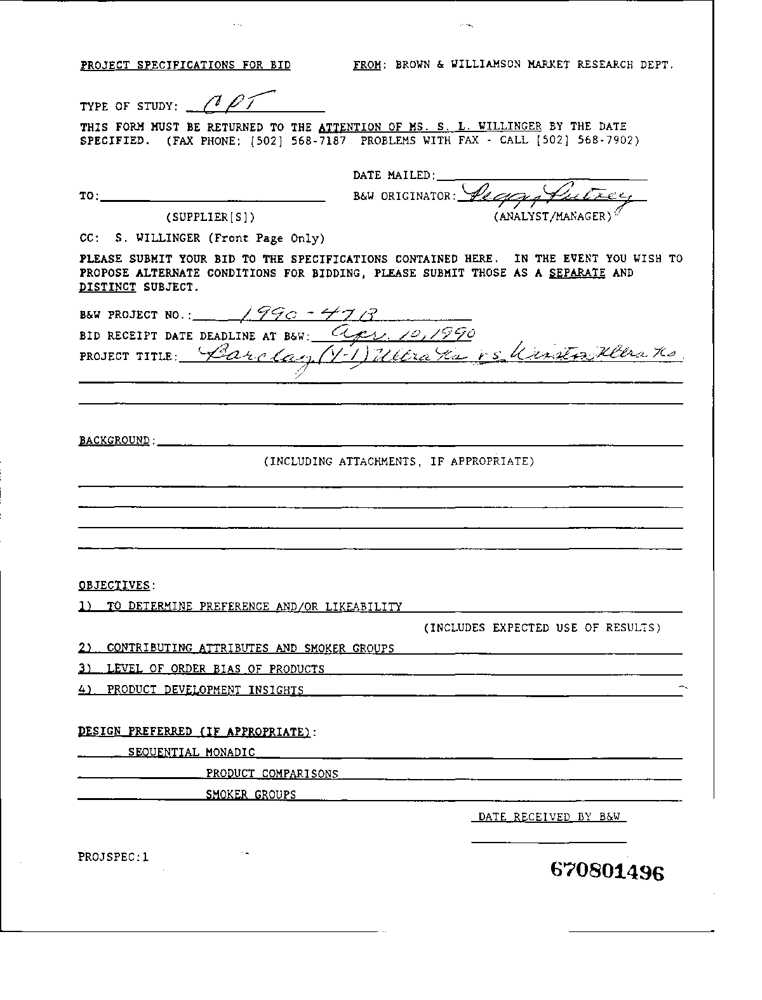 PROJECT SPECIFICATIONS FOR BID FROM: BROWN & WILLIAMSON MARKET RESEARCH DEPT.
TYPE OF STUDY: CPT
THIS FORM MUST BE RETURNED TO THE ATTENTION OF MS. S. L. WILLINGER BY THE DATE
SPECIFIED. (FAX PHONE: [502] 568-7187 PROBLEMS WITH FAX - CALL [502] 568-7902)
DATE MAILED:
TO: B&W ORIGINATOR: Peggy
(SUPPLIER[S]) (ANALYST/MANAGER)
CC: S. WILLINGER (Front Page Only)
PLEASE SUBMIT YOUR BID TO THE SPECIFICATIONS CONTAINED HERE. IN THE EVENT YOU WISH TO
PROPOSE ALTERNATE CONDITIONS FOR BIDDING, PLEASE SUBMIT THOSE AS A SEPARATE AND
DISTINCT SUBJECT.
B&W PROJECT NO.: 1990-47B
BID RECEIPT DATE DEADLINE AT B&W: Apr. 10, 1990
PROJECT TITLE: Barclay (Y-1) Ultra Ks vs Winston Ultra Ks
BACKGROUND:
(INCLUDING ATTACHMENTS, IF APPROPRIATE)
OBJECTIVES:
1) TO DETERMINE PREFERENCE AND/OR LIKEABILITY
(INCLUDES EXPECTED USE OF RESULTS)
2) CONTRIBUTING ATTRIBUTES AND SMOKER GROUPS
3) LEVEL OF ORDER BIAS OF PRODUCTS
4) PRODUCT DEVELOPMENT INSIGHTS
DESIGN PREFERRED (IF APPROPRIATE):
SEQUENTIAL MONADIC
PRODUCT COMPARISONS
SMOKER GROUPS
DATE RECEIVED BY B&W
PROJSPEC:1
670801496